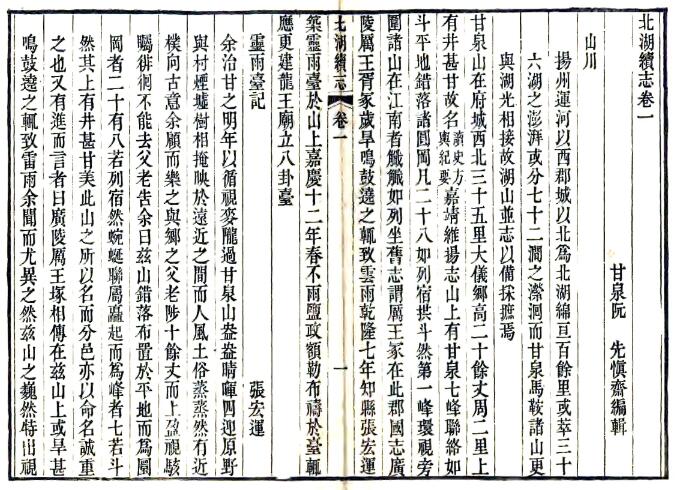 北湖續志卷一
甘泉阮 先愼齋編輯
山川
揚州運河以西郡城以北爲北湖綿亘百餘里或萃三十
六湖之澎湃或分七十二澗之瀠洄而甘泉馬鞍諸山更
與湖光相接故湖山並志以備採摭焉
甘泉山在府城西北三十五里大儀鄉高二十餘丈周二里上
有井甚甘故名讀史方輿紀要嘉靖維揚志山上有甘泉七峰聯絡如
斗平地錯落諸圓岡凡二十八如列宿拱斗然第一峰環視旁
圍諸山在江南者觿觿如列坐舊志謂厲王冢在此郡國志廣
陵厲王胥冢歲旱鳴鼓遶之輒致雲雨乾隆七年知縣張宏運
北湖續志 卷一 一
築靈雨臺於山上嘉慶十二年春不雨鹽政額勒布禱於臺輒
應更建龍王廟立八卦臺
靈雨臺記 張宏運
余治甘之明年以循視麥隴過甘泉山盎盎晴暉四迎原野
與村煙墟樹相掩映於遠近之間而人風土俗蒸蒸然有近
樸向古意余顧而樂之與鄉之父老陟十餘丈而上盈視駭
矚徘徊不能去父老告余曰茲山錯落布置於平地而爲圜
岡者二十有八若列宿然蜿蜒聯屬矗起而爲峰者七若斗
然其上有井甚甘美此山之所以名而分邑亦以命名誠重
之也又有進而言者曰廣陵厲王塚相傳在茲山上或旱甚
鳴鼓遶之輒致雷雨余聞而尤異之然茲山之巍然特出視